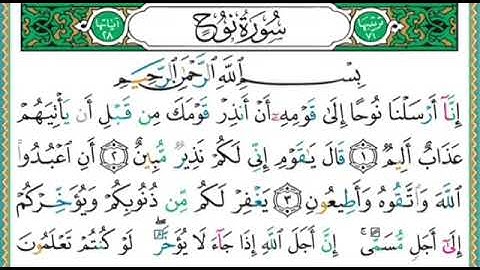 ترتيبها ٧١ سُورَةُ نُوحٍ آياتها ٢٨
بِسْمِ اللَّهِ الرَّحْمَٰنِ الرَّحِيمِ
إِنَّآ أَرْسَلْنَا نُوحًا إِلَىٰ قَوْمِهِۦٓ أَنْ أَنذِرْ قَوْمَكَ مِن قَبْلِ أَن يَأْتِيَهُمْ
عَذَابٌ أَلِيمٌ ﴿١﴾ قَالَ يَٰقَوْمِ إِنِّى لَكُمْ نَذِيرٌ مُّبِينٌ ﴿٢﴾ أَنِ ٱعْبُدُوا۟
ٱللَّهَ وَٱتَّقُوهُ وَأَطِيعُونِ ﴿٣﴾ يَغْفِرْ لَكُم مِّن ذُنُوبِكُمْ وَيُؤَخِّرْكُمْ
إِلَىٰٓ أَجَلٍ مُّسَمًّى ۚ إِنَّ أَجَلَ ٱللَّهِ إِذَا جَآءَ لَا يُؤَخَّرُ ۖ لَوْ كُنتُمْ تَعْلَمُونَ